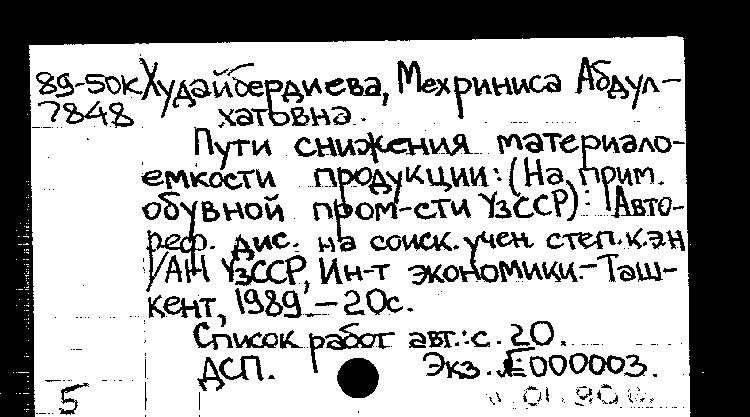 89-50к Худайбердиева, Мехриниса Абдул-
7848 хатовна.
Пути снижения материало-
емкости продукции: (На прим.
обувной пром-сти УзССР): Авто-
реф. дис. на соиск. учен. степ. к.э.н
/АН УзССР, Ин-т экономики.- Таш-
кент, 1989. - 20с.
Список работ авт.: с. 20.
ДСП. Экз. №000003.
5